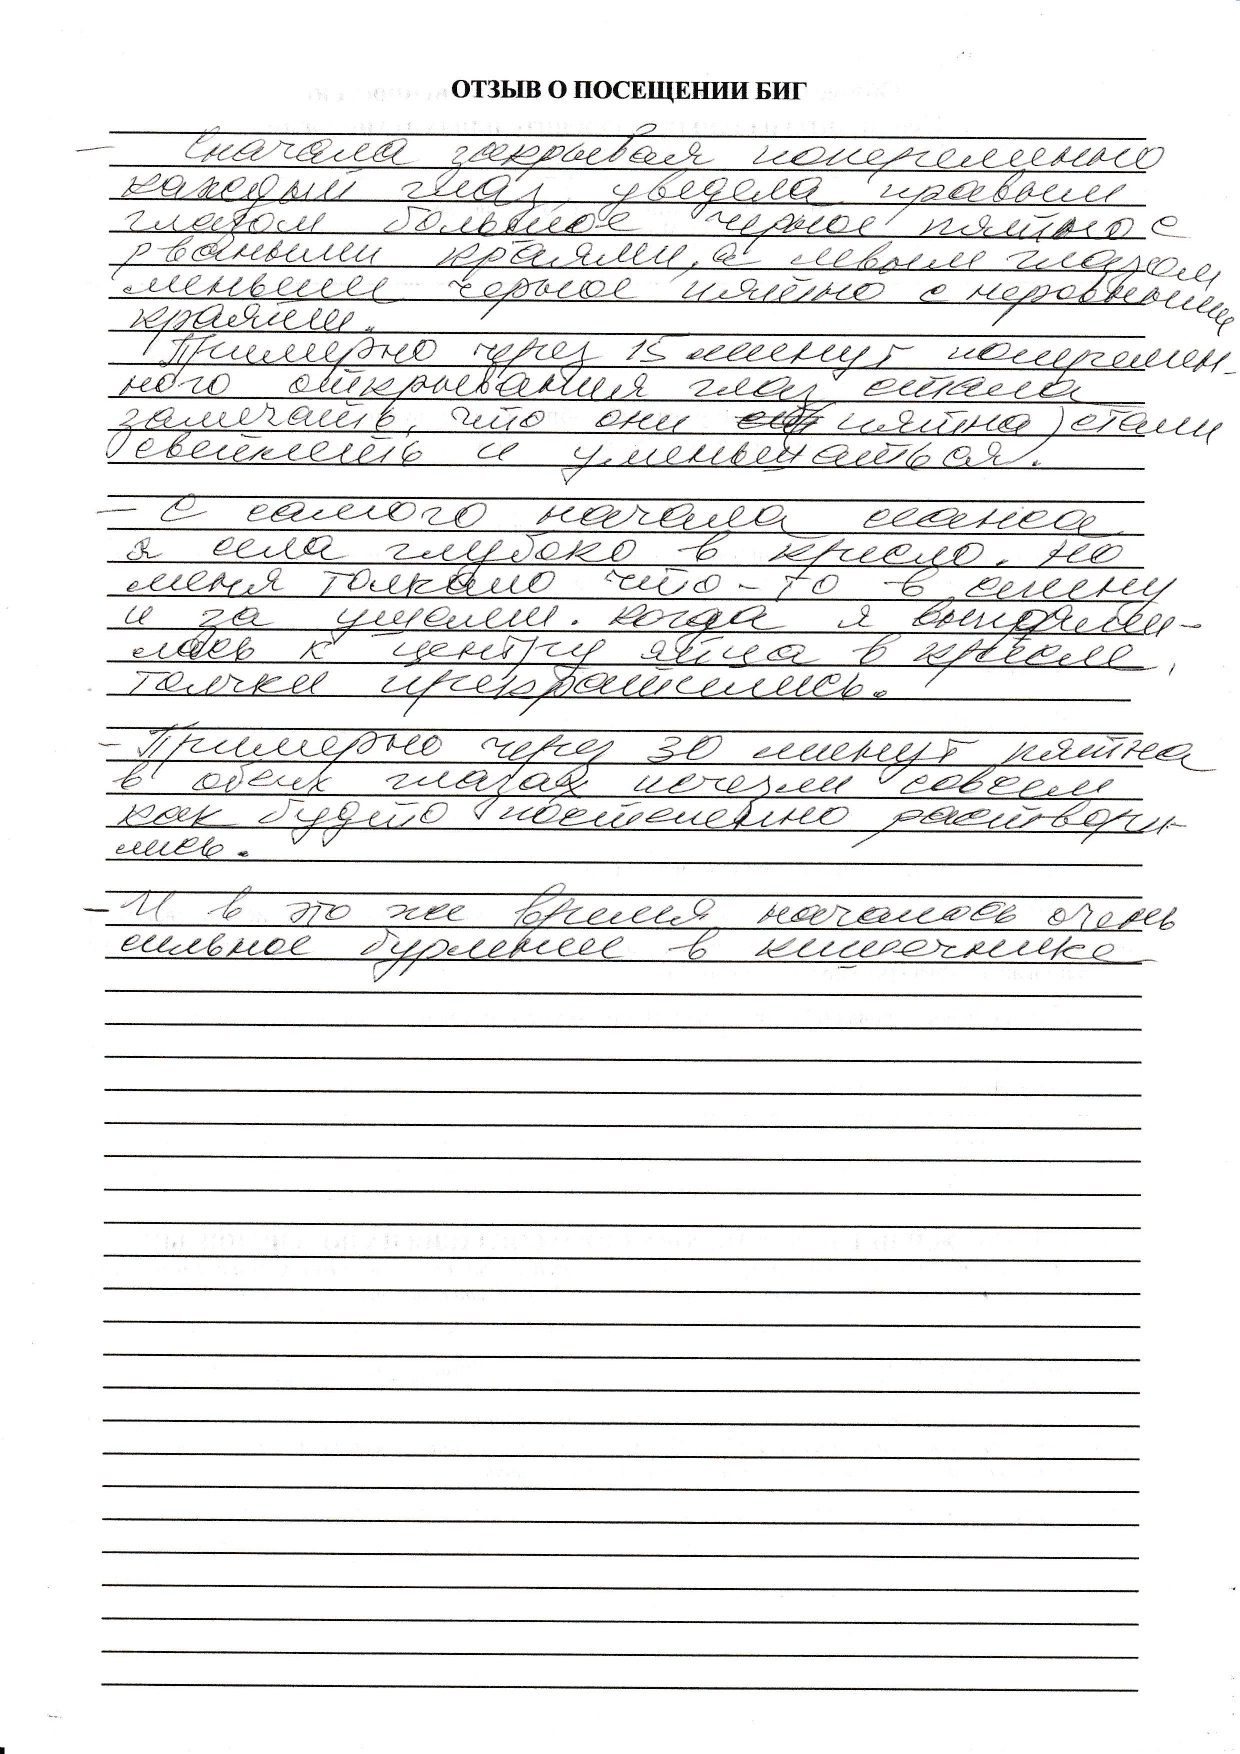 ОТЗЫВ О ПОСЕЩЕНИИ БИГ
– Сначала закрывая попеременно
каждый глаз, уведела правым
глазом большое черное пятно с
рваными краями, а левым глазом
меньшее черное пятно с неровными
краями.
Примерно через 15 минут поперемен-
ного открывания глаз стала
замечать, что они (пятна) стали
светлеть и уменьшаться.
– С самого начала сеанса
я села глубоко в кресло. Но
меня толкало что-то в спину
и за ушами. Когда я выпрями-
лась к центру яйца в кресле,
толчки прекратились.
– Примерно через 30 минут пятна
в обеих глазах исчезли совсем
как будто постепенно раствори-
лись.
– И в это же время началось очень
сильное бурление в кишечнике